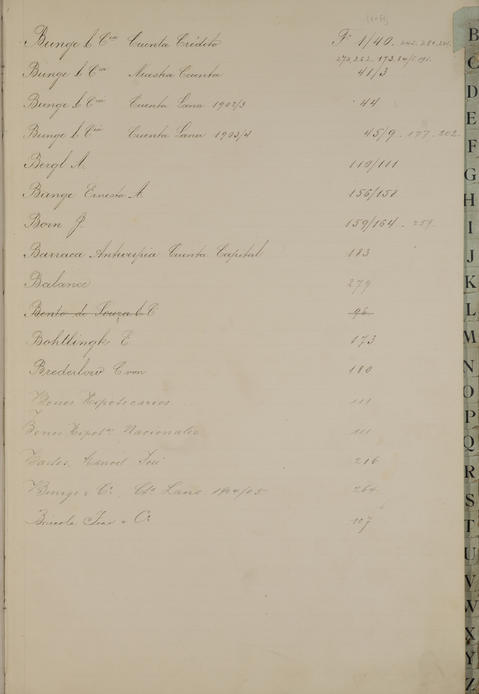 Bunge & Cia Cuenta Crédito F° 1/40
Bunge & Cia Nuestra Cuenta 41/3
Bunge & Cia Cuenta Lana 1902/3 44
Bunge & Cia Cuenta Lana 1903/4 45/9 - 177 - 202
Bergl A. 110/111
Bunge Ernesto A. 156/158
Born J. 159/164 - 259
Barraca Antwerpia Cuenta Capital 183
Balance 279
Bento de Souza & C 96
Bohtlingk E 173
Brederlow C von 180
Bonos Hipotecarios 111
Bonos Hipots Nacionales 111
Manoel José 216
Bunge & Ca Cta Lana 1904/05 264
& Ca 107
B
C
D
E
F
G
H
I
J
K
L
M
N
O
P
Q
R
S
T
U
V
W
X
Y
Z